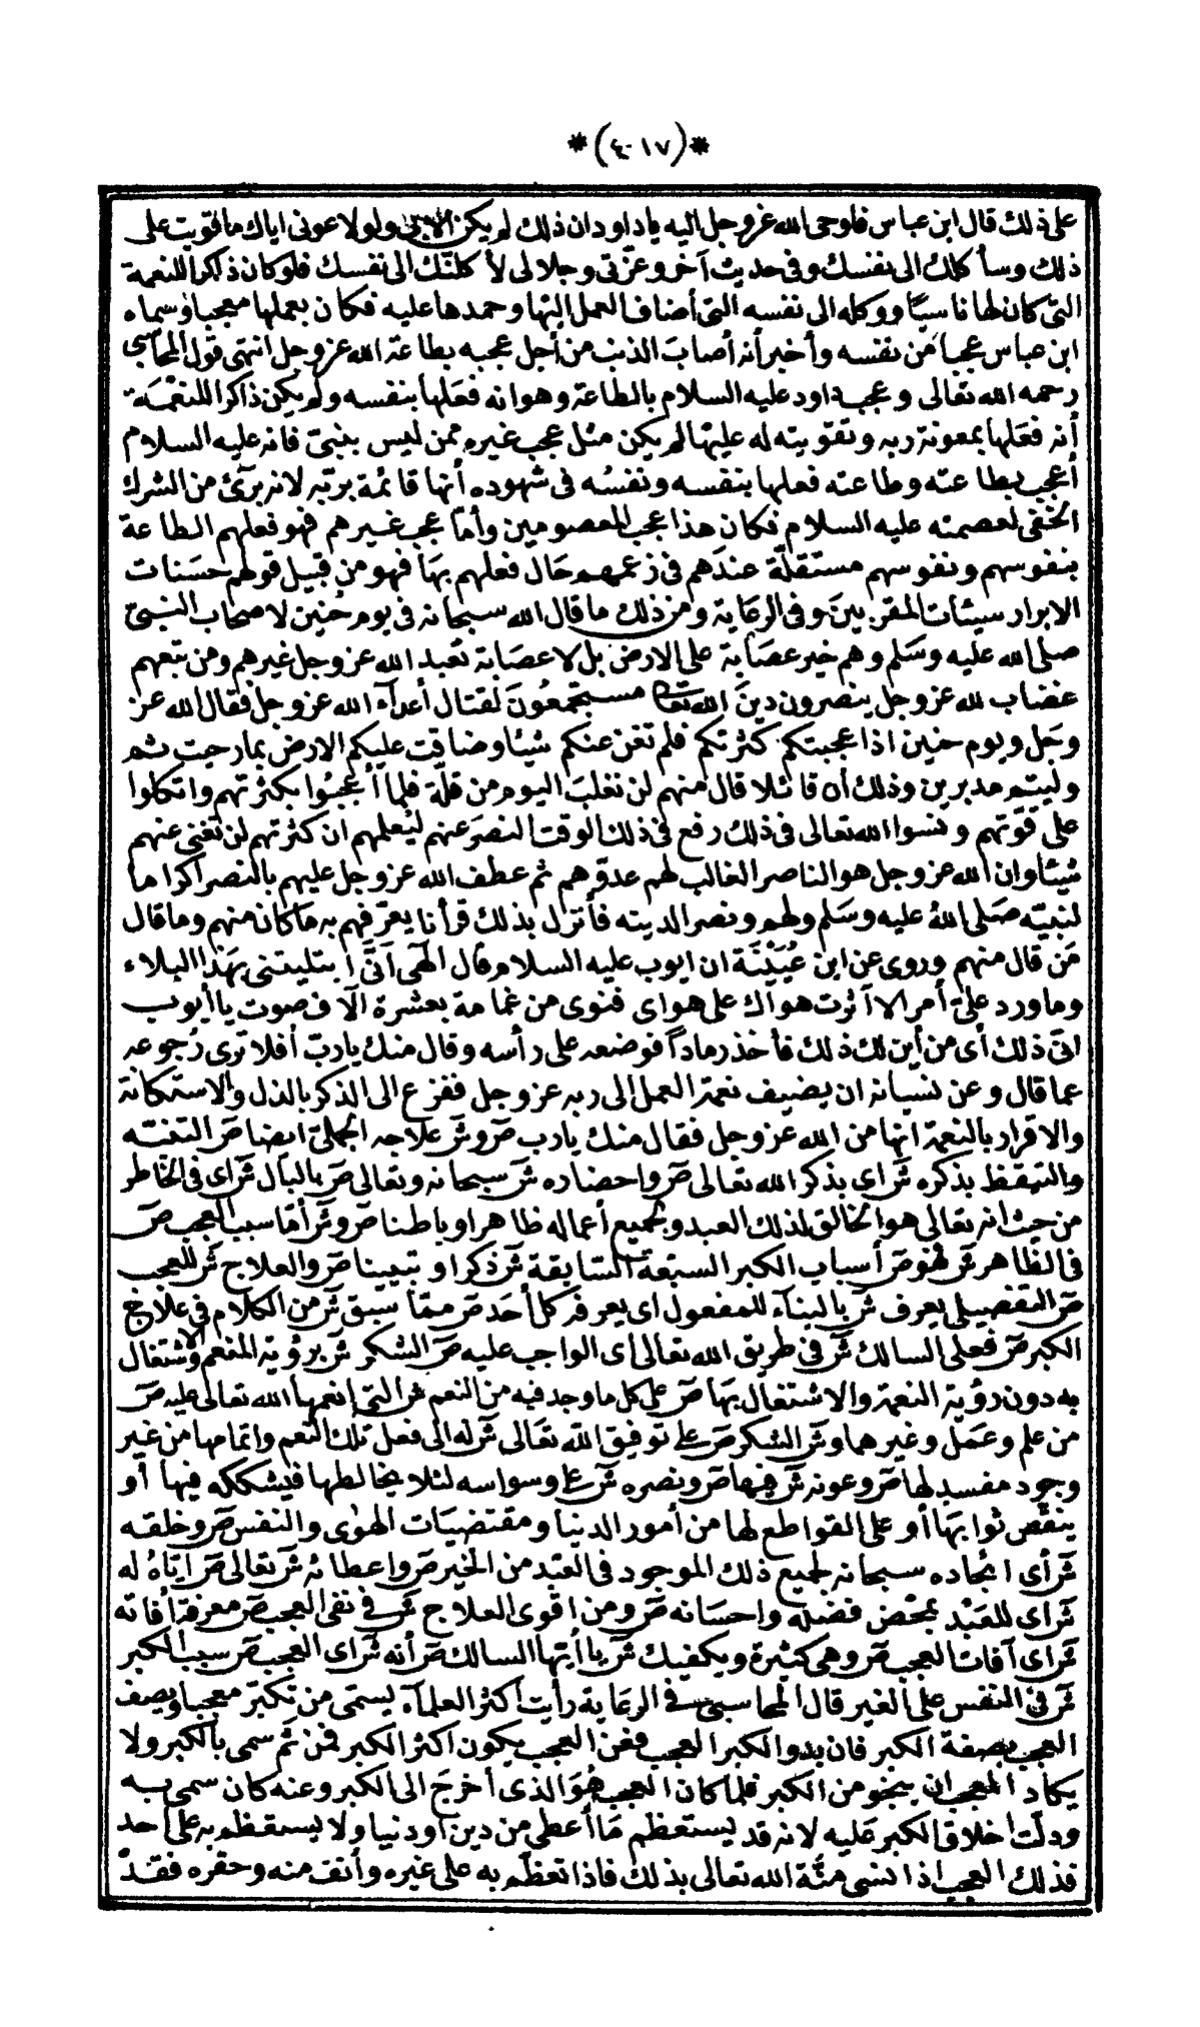 *(٤٠١٧)*
على ذلك قال ابن عباس فاوحى الله عز وجل اليه ياداود ان ذلك لم يكن الا بى ولولا عونى اياك ما قويت على
ذلك وسأ كلك الى نفسك وفى حديث آخر وعزتى وجلالى لأ كلنّك الى نفسك فلو كان ذاكرا للنعمة
التى كان لها ناسيًا ووكله الى نفسه التى أضاف العمل اليها وحمدها عليه فكان بعملها معجبا وسماه
ابن عباس عجبا من نفسه وأخبر أنه أصابَ الذنب من أجل عجبه بطاعة الله عز وجل انتهى قول المحاسبى
رحمه الله تعالى وعجب داود عليه السلام بالطاعة وهو انه فعَلها بنفسه ولم يكن ذاكرا للنعْمَة
أنه فعَلها بمعونة ربه وتقويته له عليها لم يكن مثل عجب غيره ممن ليس بنبىّ فانه عليه السلام
أعجب بطاعته وطاعته فعلها بنفسه ونفسُه فى شهوده أنها قائمة بربّه لانه برئ من الشرك
الخفى لعصمته عليه السلام فكان هذا عجب المعصومين وأمّا عجب غيرهم فهو فعلهم الطاعة
بنفوسهم ونفوسهم مستقلّة عندَهم فى زعمهم حَال فعلهم بهَا فهو من قبيل قولهم حسَنات
الابرار سيئات المقربينَ وفى الرعَاية ومن ذلك ما قال الله سبحانه فى يوم حُنين لاصحاب النبىّ
صلى الله عليه وسَلم وهم خير عصَابة على الارض بل لا عصَابة تعبد الله عز وجل غيرهم ومن تبعهم
غضاب لله عز وجل ينصرون دينَ الله تعالى مستجمعُونَ لقتال أعدآء الله عز وجل فقال الله عز
وجَل ويوم حنين اذ اعجبتكم كثرتكم فلم تغن عنكم شيئا وضاقت عليكم الارض بما رحبت ثم
وليتم مدبرين وذلك أن قائلا قال منهم لن نغلبَ اليوم من قلّة فلما أعجبُوا بكثرتهم واتكلوا
على قوّتهم ونسوا الله تعالى فى ذلك رفع فى ذلك الوقت النصرَ عنهم ليُعلمهم ان كثرتهم لن تغنى عنهم
شيئا وان الله عز وجل هو الناصر الغالب لهم عدوّهم ثم عطف الله عز وجل عليهم بالنصر اكراما
لنبيّه صَلى اللهُ عليه وسَلم ولهم ونصرا لدينه فأنزل بذلك قرأنا يعرّفهم به مَا كان منهم وما قال
مَن قال منهم وروى عن ابن عُيَيْنَة ان ايوب عليه السلام قال الهى اَنَّكَ ابتليتنى بهَذا البلاء
وما ورد علىّ أمر الا آثرت هواك على هواى فنودى من غمامة بعشرة الآف صوت يا أيوب
انّى ذلك أى من أين لك ذلك فأخذ رمادًا فوضعه على رأسه وقال منك يا ربّ أفلا ترى رُجوعه
عما قال وعن نسيانه ان يضيف نعمة العمل الى ربه عز وجل ففزع الى الذكر بالذل والاستكانة
والاقرار بالنعمة انها من الله عز وجل فقال منك يا رب صَ وشَ علاجه الجملىّ ايضا صَ التنبّه
والتيقظ بذكره شَ اى بذكر الله تعالى صَ واحضاره شَ سبحانه وتعالى صَ بالبَال شَ اى فى الخاطر
من حيث انه تعالى هو الخالق لذلك العبد ولجميع أعماله ظاهرا وباطنا صَ وشَ أمّا سبب العجب صَ
فى الظاهر شَ فهو صَ أسباب الكبر السبعَة السّابقة شَ ذكرا وتبيينا صَ والعلاج شَ للعجب
صَ التفصيلى يعرف شَ بالبنآء للمفعول اى يعرفه كل أحَد صَ ممّا سبق شَ من الكلام فى علاج
الكبر صَ فعلى السالك شَ فى طريق الله تعالى اى الواجب عليه صَ الشكر شَ برؤية المنعم والاشتغال
به دون رؤية النعمة والاشتغال بهَا صَ على كل ما وجد فيه من النعم شَ التى انعمها الله تعالى عليه صَ
من علم وعمَل وغيرهما وشَ الشكر صَ على توفيق الله تعَالى شَ له الى فعل تلك النعم واتمامها من غير
وجود مفسد لها صَ وعونه شَ فيها صَ ونصره شَ على وسواسه لئلا يخالطها فيشككه فيها أو
ينقّص ثوابهَا أو على القواطع لها من أمور الدنيا ومقتضيَات الهوٰى والنفس صَ وخلقه
شَ أى ايجاده سبحانه لجميع ذلك الموجود فى العبْد من الخير صَ واعطائه شَ تعالى صَ ايّاهُ له
شَ اى للعَبْد بمحْض فضله واحسَانه صَ ومن اقوى العلاج شَ فى نفى العجب صَ معرفة أفاته
شَ اى آفات العجب صَ وهى كثيرة ويكفيك شَ يا أيّها السالك صَ أنه شَ اى العجب صَ سبب الكبر
شَ فى النفس على الغير قال المحاسبى فى الرعَاية رأيت أكثر العلمآء يسمّى من تكبّر معجبا ويصف
العجب بصفة الكبر فان بدو الكبر العجب فعن العجب يكون اكثر الكبر فمن ثَم سمى بالكبر ولا
يكاد المعجب ان ينجو من الكبر فلما كان العجب هُوَ الذى أخرجَ الى الكبر وعنه كان سمى به
ودلّت اخلاق الكبر عَليه لانه قد يستعظم مَا أعطى من دين او دنيا ولا يستعظم به على احد
فذلك العجب اذا نسى منّة الله تعالى بذلك فاذا تعظّم به على غيره وأنف منه وحقره فقدْ